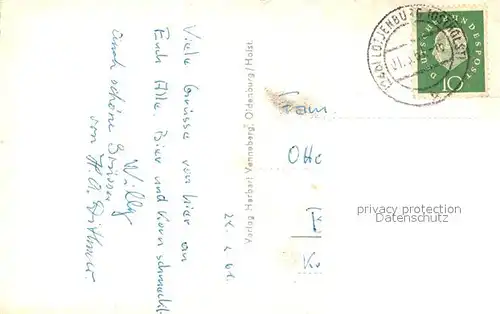 Viele Grüsse von hier an
Euch Alle. Bier und Korn schmeckt.
Willy
Auch schöne Grüsse
von H. A. Dittmer.
Verlag Herbert Venneberg, Oldenburg/Holst.
Fam
Otto
LÜTJENBURG (OSTHOLST)
DEUTSCHE BUNDESPOST
10
privacy protection
Datenschutz